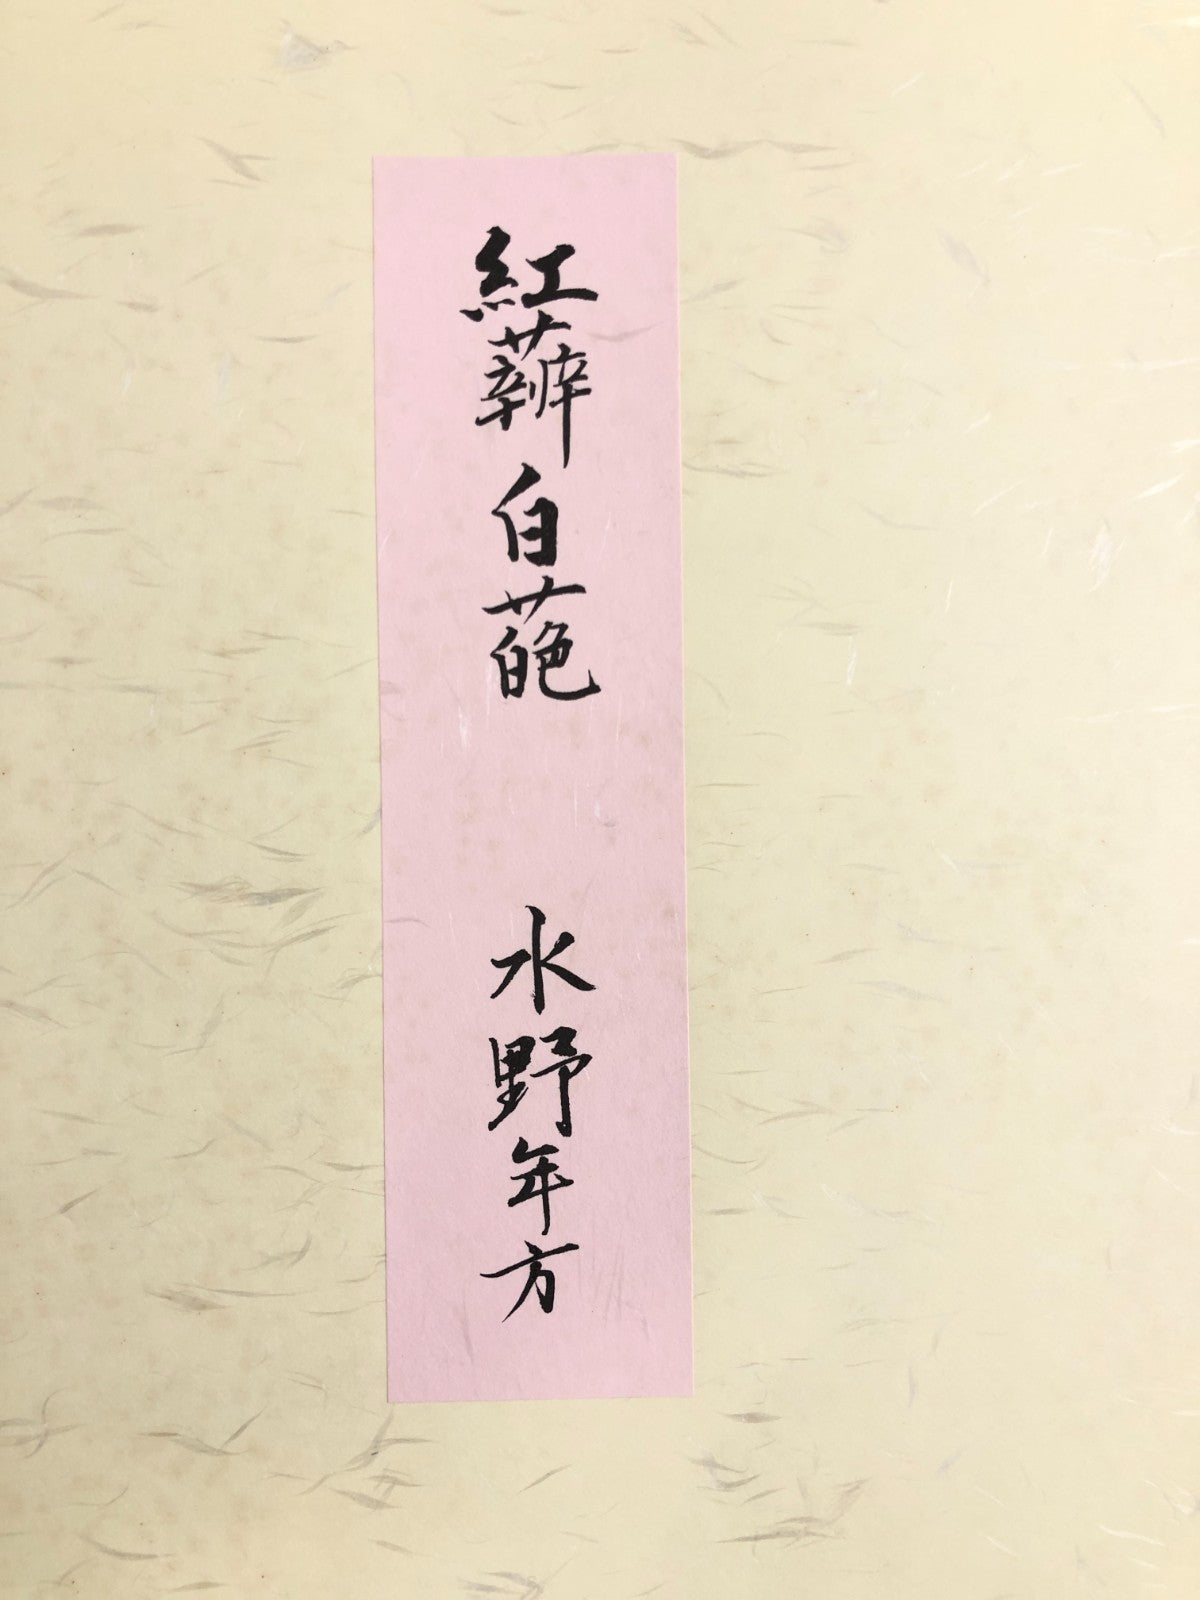 紅白葩
水野年方